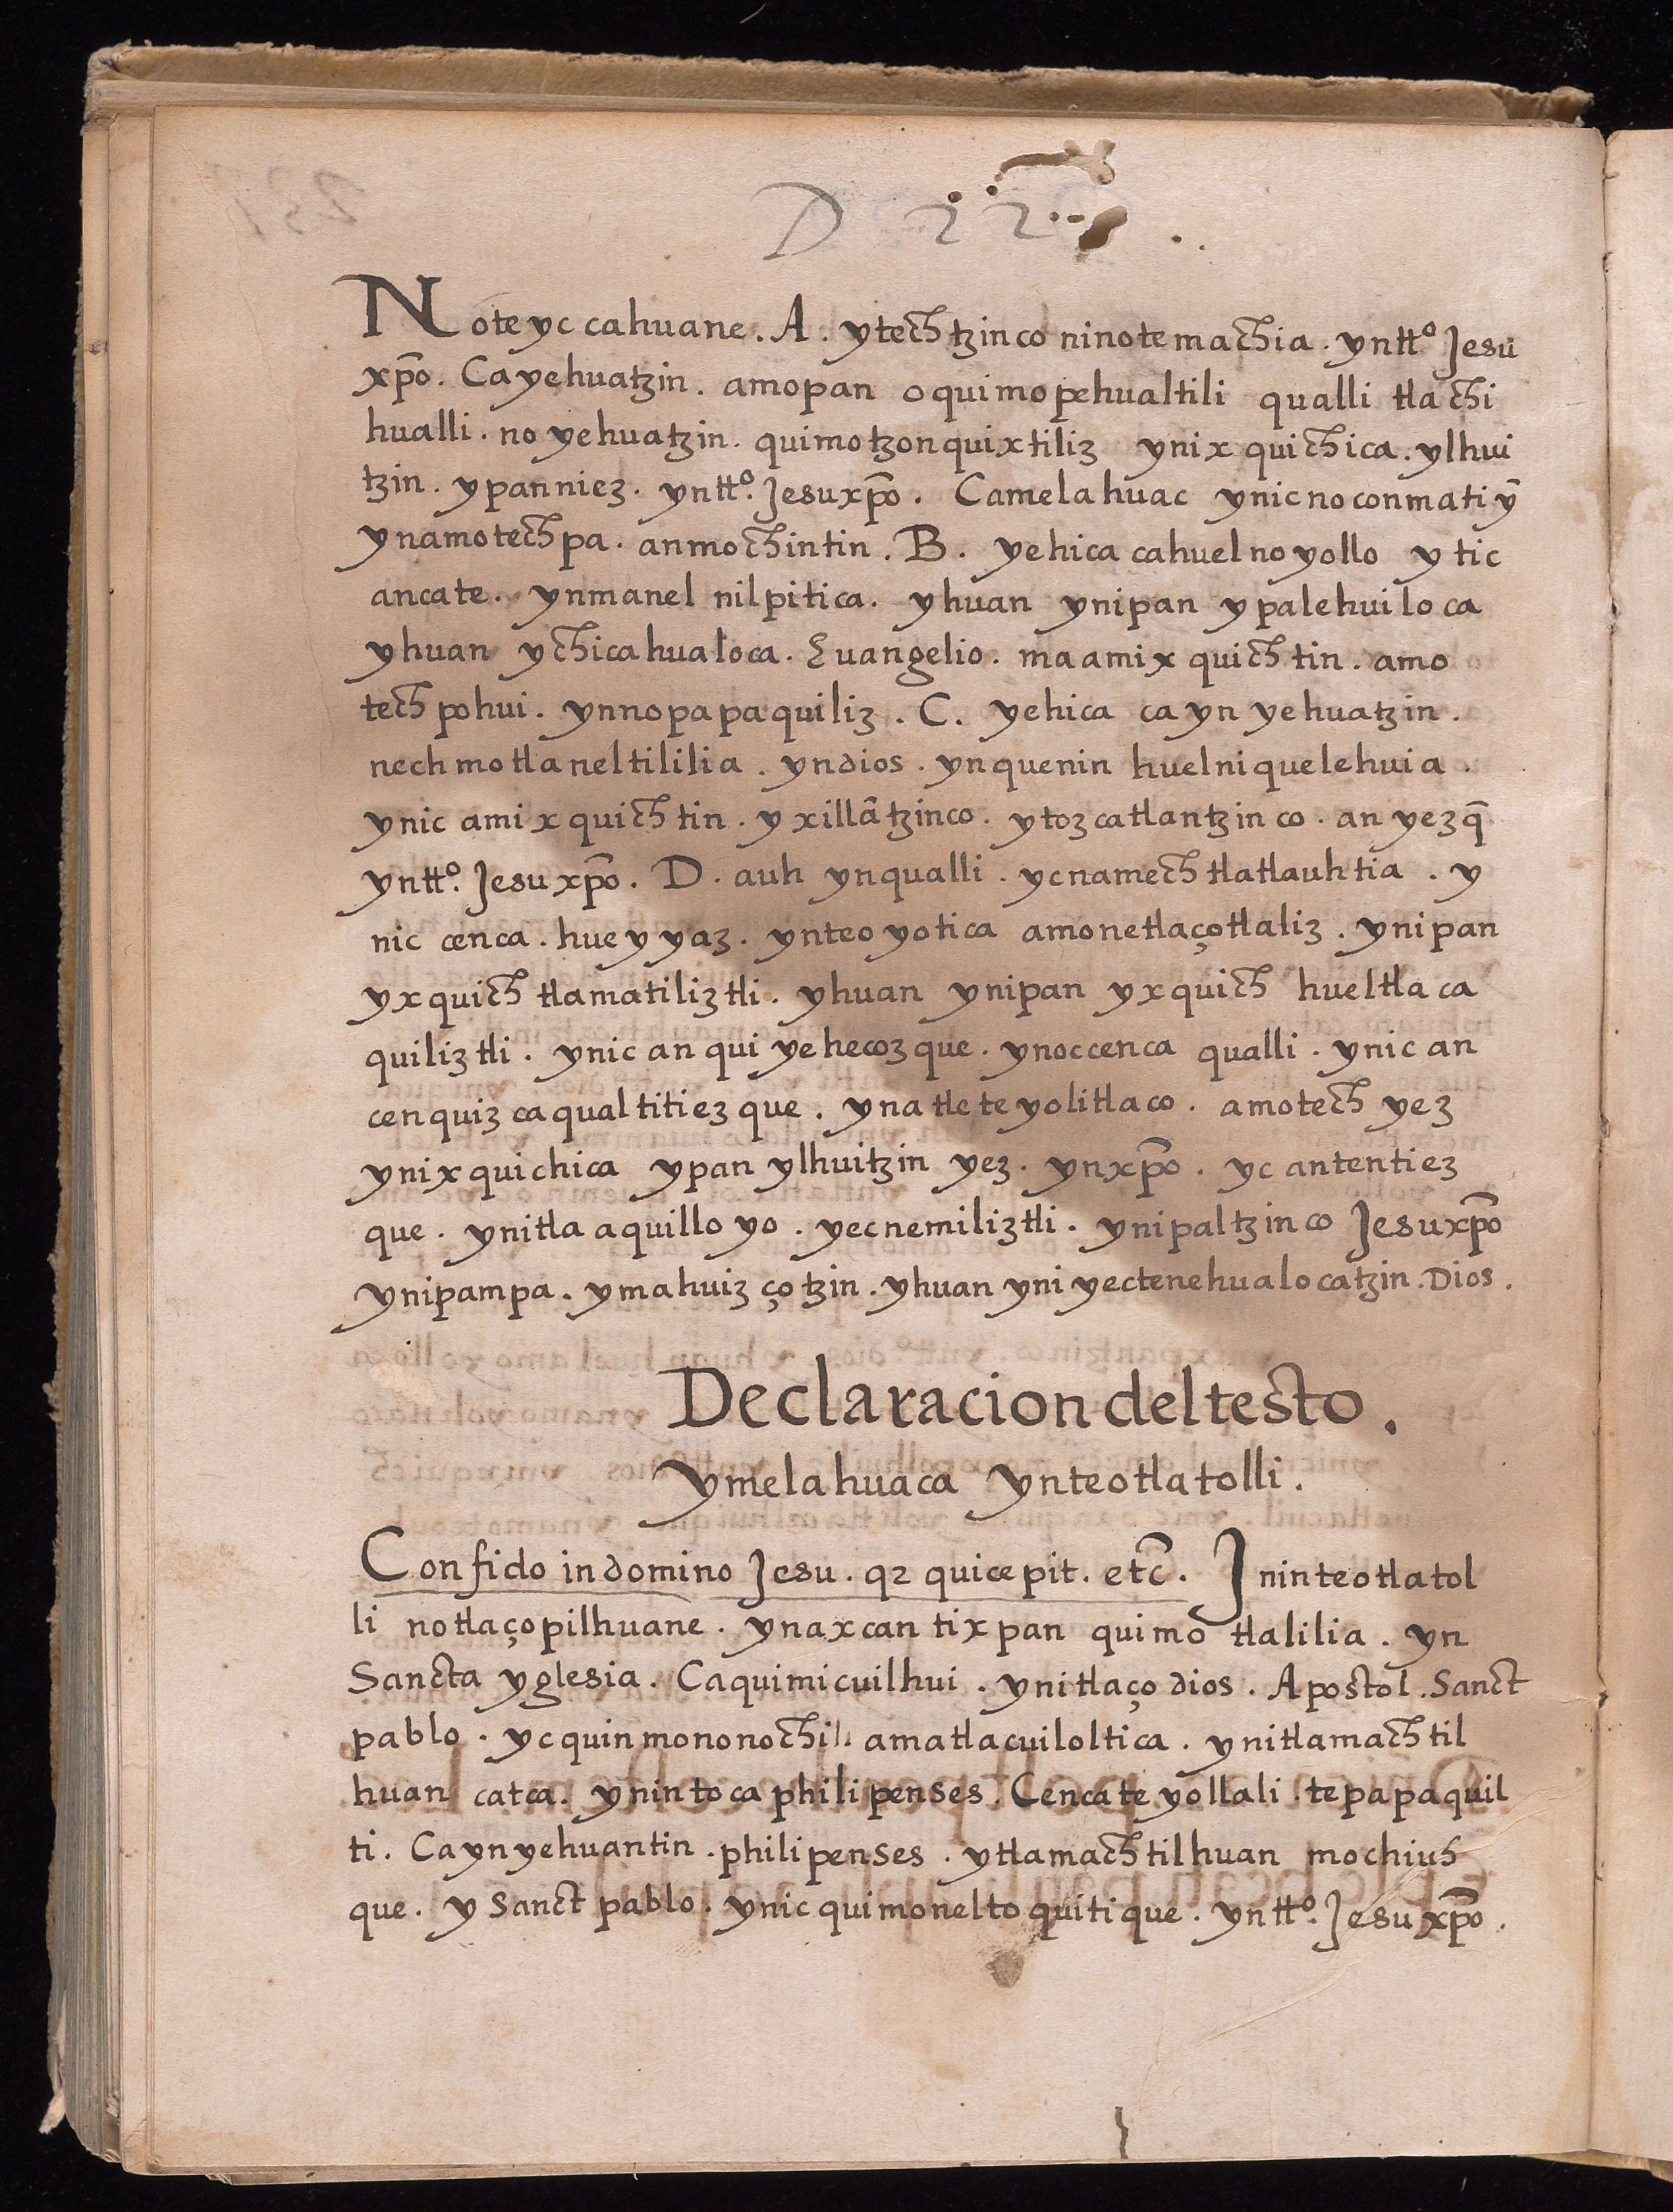 D 22
Noteyc cahuane. A. ytechtzinco ninotemachia. yntt.º Jesu
xp̄o. Ca yehuatzin. amopan oquimopehualtili qualli tlachi
hualli. no yehuatzin. quimotzonquixtiliz ynixquichica. ylhui
tzin. ypanniez. yntt.º Jesuxp̄o. Camelahuac ynicnoconmatiȳ
ynamotechpa. anmochintin. B. yehica cahuelnoyollo ytic
ancate. ynmanel nilpitica. yhuan ynipan ypalehuiloca
yhuan ychicahualoca. Euangelio. maamixquichtin. amo
techpohui. ynnopapaquiliz. C. yehica ca yn yehuatzin.
nechmotlaneltililia. yndios. ynquenin huelniquelehuia.
ynic amixquichtin. yxillātzinco. ytozcatlantzinco. anyezq̄
yntt.º Jesuxp̄o. D. auh ynqualli. ycnamechtlatlauhtia. y
nic cenca. hueyyaz. ynteoyotica amonetlaçotlaliz. ynipan
yxquich tlamatiliztli. yhuan ynipan yxquich hueltlaca
quiliztli. ynic anquiyehecozque. ynoccenca qualli. ynic an
cenquizcaqualtitiezque. ynatleteyolitlaco. amotech yez
ynixquichica ypan ylhuitzin yez. ynxp̄o. yc antentiez
que. ynitlaaquilloyo. yecnemiliztli. ynipaltzinco Jesuxp̄o
ynipampa. ymahuizçotzin. yhuan yniyectenehualocatzin. Dios.
Declaracion deltesto.
Ymelahuaca Ynteotlatolli.
Confido in domino Jesu. q2 quicepit. etc̄. Jninteotlatol
li notlaçopilhuane. ynaxcan tixpan quimotlalilia. yn
Sancta yglesia. Caquimicuilhui. ynitlaço dios. Apostol. Sanct
pablo. yc quinmononochili amatlacuiloltica. ynitlamachtil
huan catca. ynintoca philipenses. Cencateyollali. tepapaquil
ti. Caynyehuantin. philipenses. ytlamachtilhuan mochiuh
que. y Sanct pablo. ynic quimoneltoquitique. yntt.º Jesuxp̄o.